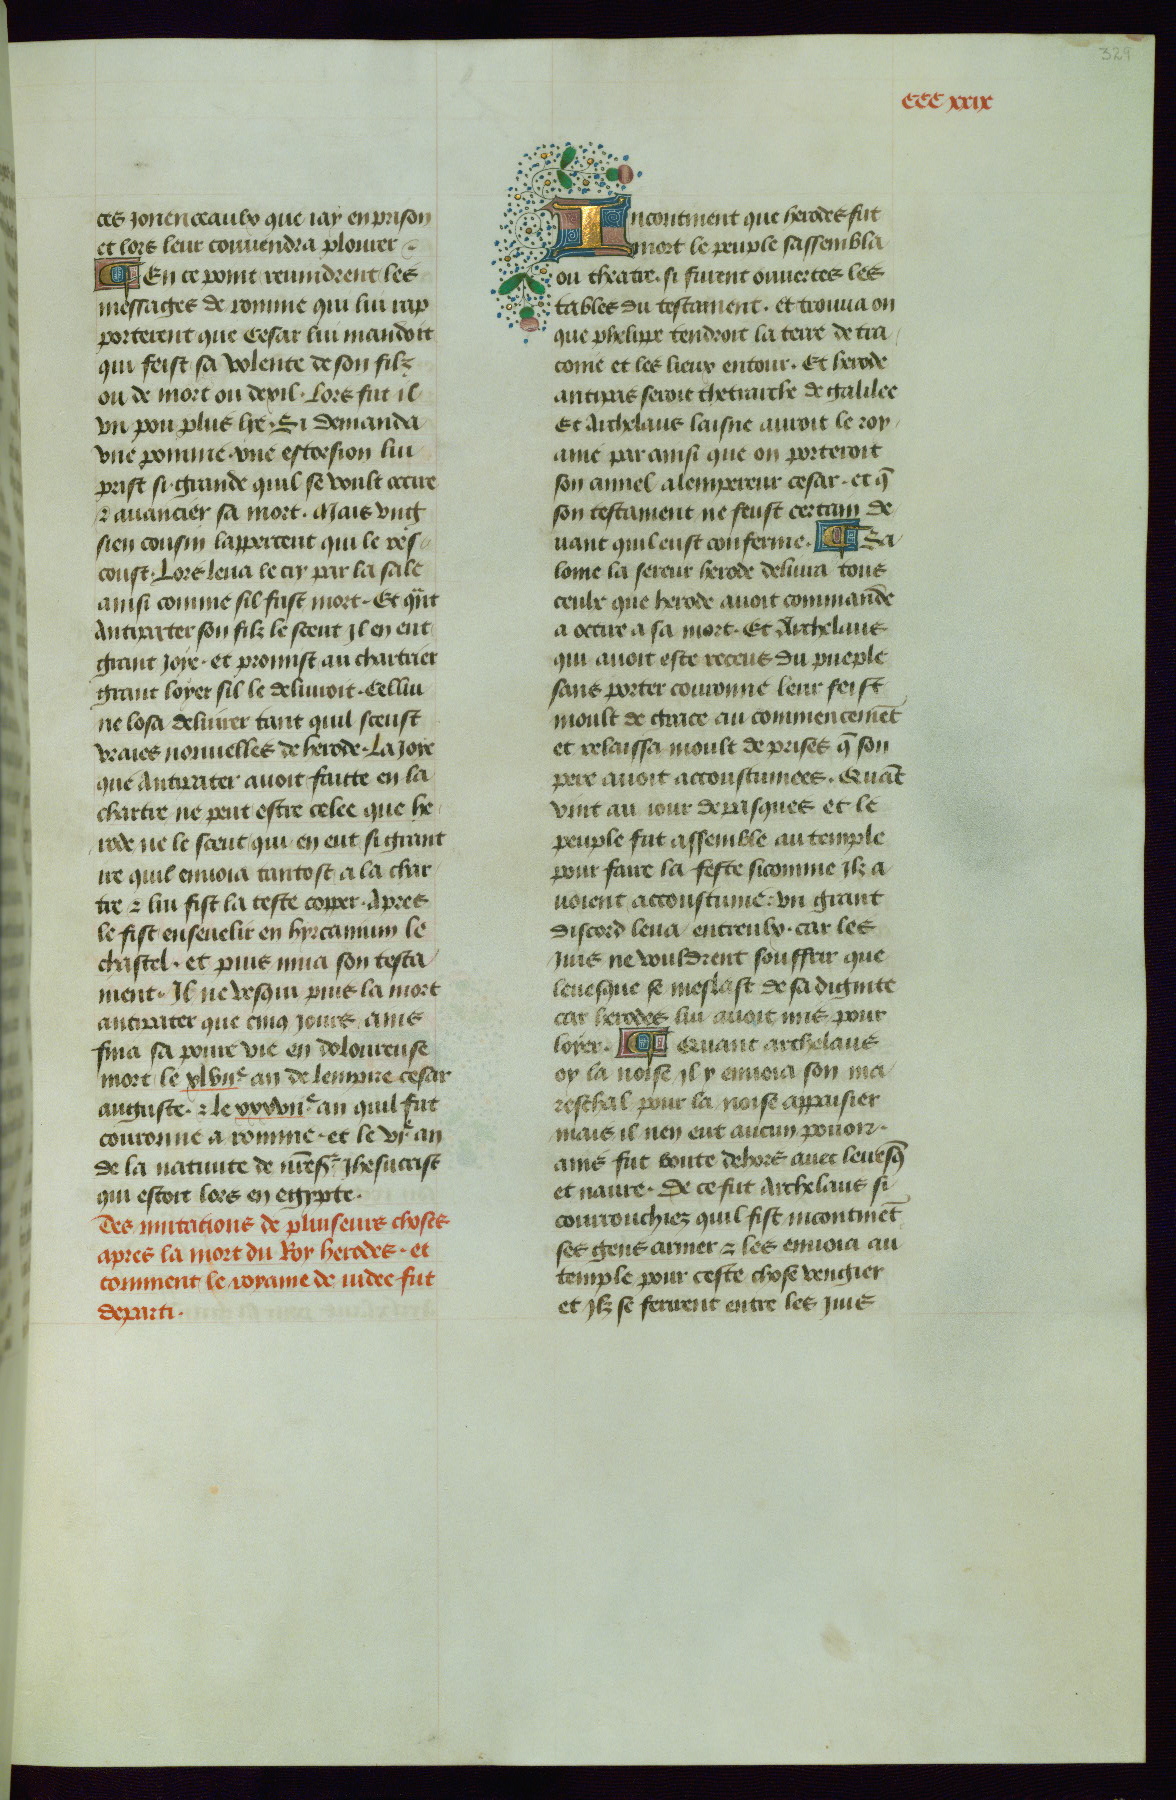 329
CCC xxix
ces jouenceaulx que iay en prison
et lors leur conuendra plourer
En ce point reuindrent les
messages de romme qui lui rap
porterent que Cesar lui mandoit
qui feist sa volente de son filz
ou de mort ou dexil. Lors fut il
vn pou plus lie. Si demanda
vne pomme. vne estorsion lui
prist si grande quil se voult occire
⁊ auancier sa mort. Mais vng
sien cousin lappercent qui le res
coust. Lors leua le cry par la sale
ainsi comme sil fust mort. Et qñt
Antipater son filz le sceut Il en eut
grant joye. et promist au chartrier
grant loyer sil le deliuroit. Cellui
ne losa deliurer tant quil sceust
vraies nouuelles de herode. La joye
que Antipater auoit faitte en la
chartre ne peut estre celee que he
rode ne le sceut qui en eut si grant
ire quil enuoia tantost a la char
tre ⁊ lui fist la teste coper. Apres
le fist enseuelir en hyrcanium le
chastel. et puis mua son testa
ment. Il ne vesqui puis la mort
antipater que cinq jours ains
fina sa poure vie en doloureuse
mort le xlviie an de lempire cesar
auguste. ⁊ le xxxviie an quil fut
couronne a romme. et le vie an
de la natiuite de nr̃e sr̃ Jhesucrist
qui estoit lors en egypte.
Des mutations de pluiseurs choses
apres la mort du Roy herodes. et
comment le royame de iudee fut
departi.
Incontinent que herodes fut
mort le peuple sassembla
ou theatre. si furent ouuertes les
tables du testament. et trouua on
que phelippe tendroit la terre de tra
come et les lieux entour. Et herode
antipas seroit thetrarche de galilee
Et Archelaus laisne auroit le roy
ame par ainsi que on porteroit
son annel a lempereur cesar. et q̃
son testament ne feust certain de
uant quil eust conferme. Sa
lome la sereur herode deliura tous
ceulx que herode auoit commande
a occire a sa mort. Et Archelaus
qui auoit este receus du pueple
sans porter couronne leur feist
moult de grace au commencemẽt
et relaissa moult de prises q̃ son
pere auoit accoustumees. Quãt
vint au iour de pasques et le
peuple fut assemble au temple
pour faire la feste sicomme jlz a
uoient accoustume: vn grant
discord leua entreulx. car les
juis ne vouldrent souffrir que
leuesque se meslast de sa dignite
car herodes lui auoit mis pour
loyer. Quant archelaus
oy la noise il y enuoia son ma
reschal pour la noise appaisier
mais il nen eut aucun pouoir.
ains fut boute dehors auec leuesq̃
et naure. De ce fut Archelaus si
courrouchiez quil fist incontinẽt
ses gens armer ⁊ les enuoia au
temple pour ceste chose vengier
et jlz se ferirent entre les juis